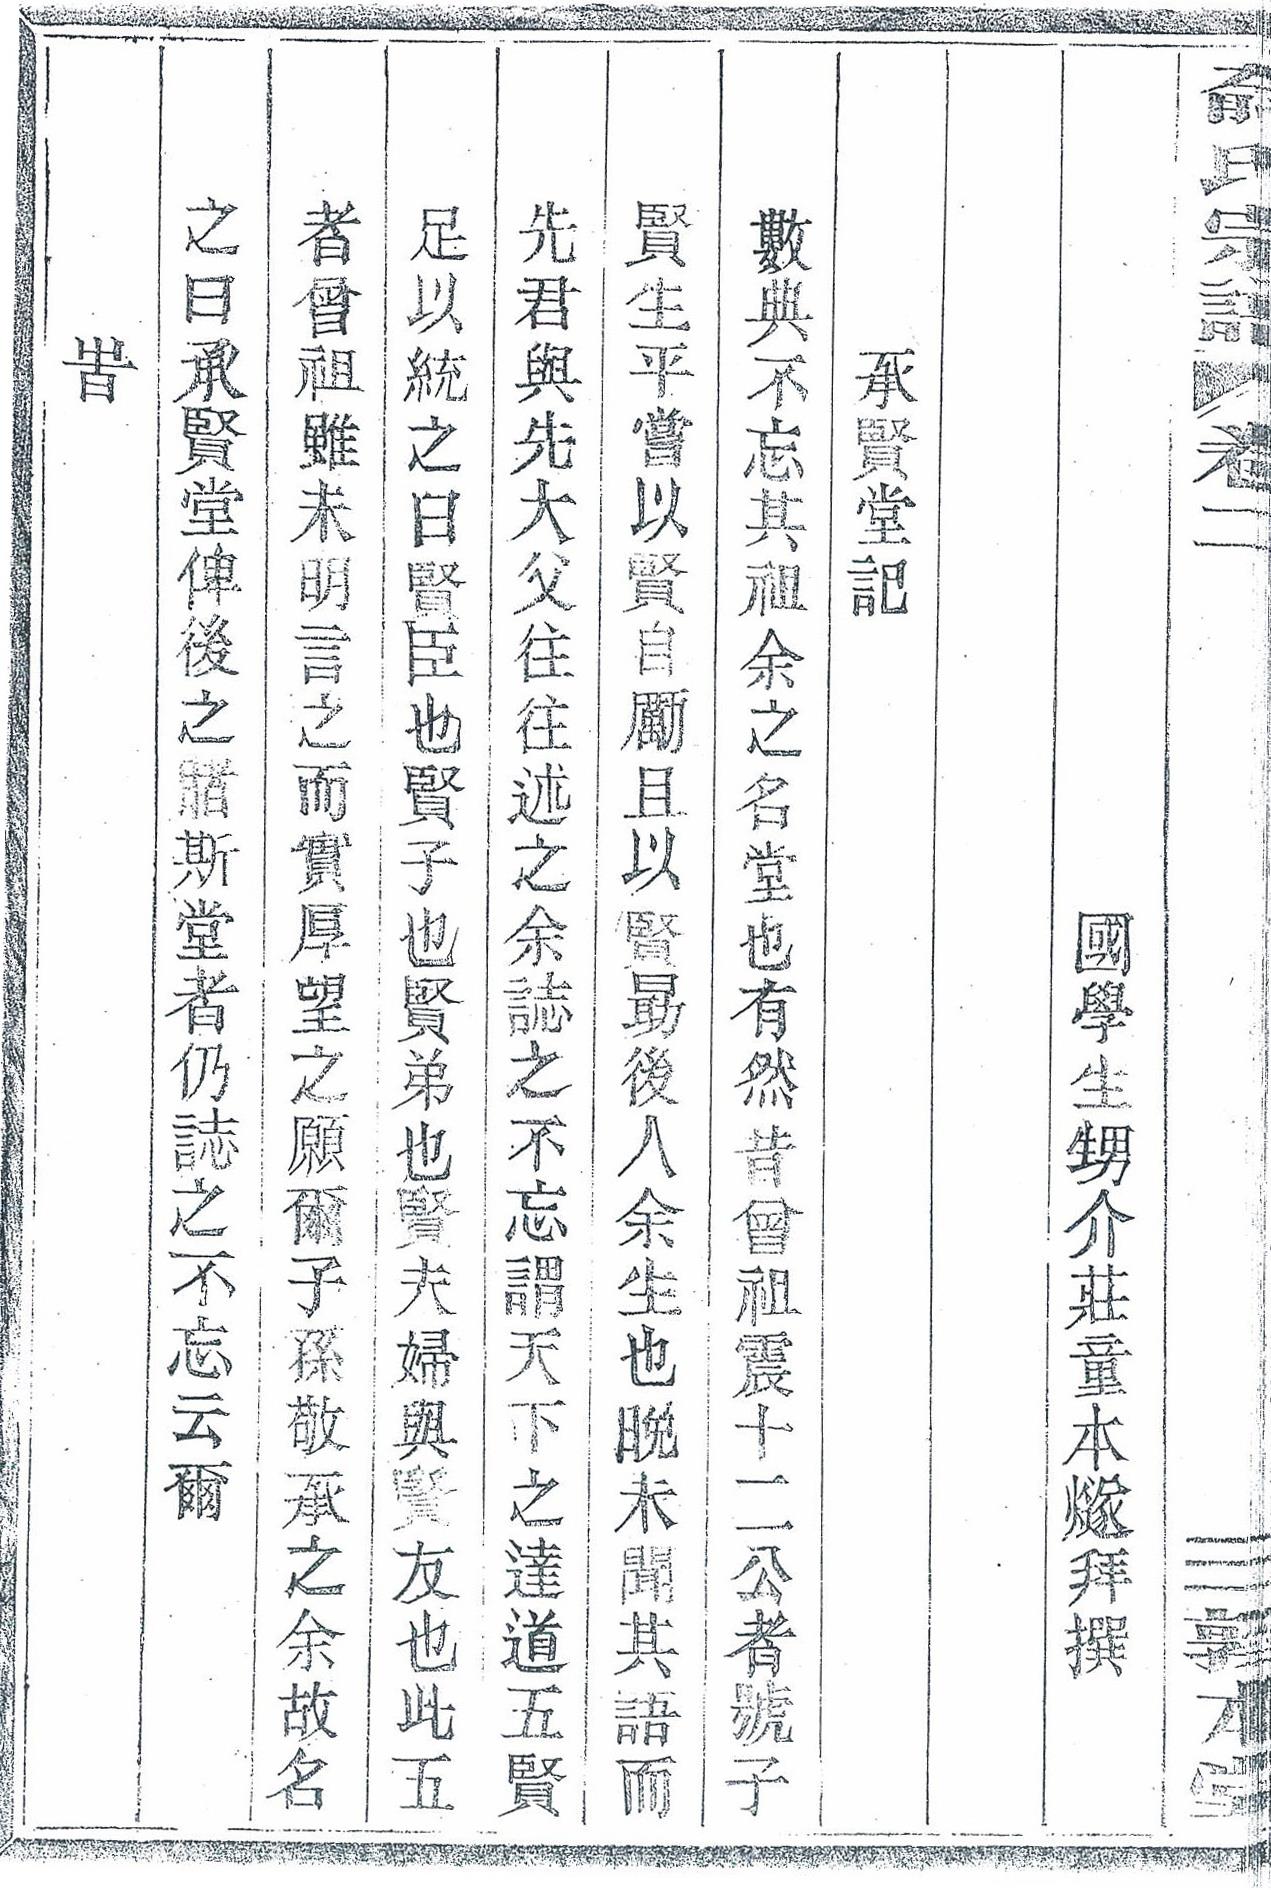 俞氏宗譜 卷二 三 敦本堂
國學生甥介莊童本燧拜撰
承賢堂記
數典不忘其祖余之名堂也有然昔曾祖震十二公者號子
賢生平嘗以賢自勵且以賢勗後人余生也晚未聞其語而
先君與先大父往往述之余誌之不忘謂天下之達道五賢
足以統之曰賢臣也賢子也賢弟也賢夫婦與賢友也此五
者曾祖雖未明言之而實厚望之願爾子孫敬承之余故名
之曰承賢堂俾後之睹斯堂者仍誌之不忘云爾
旹